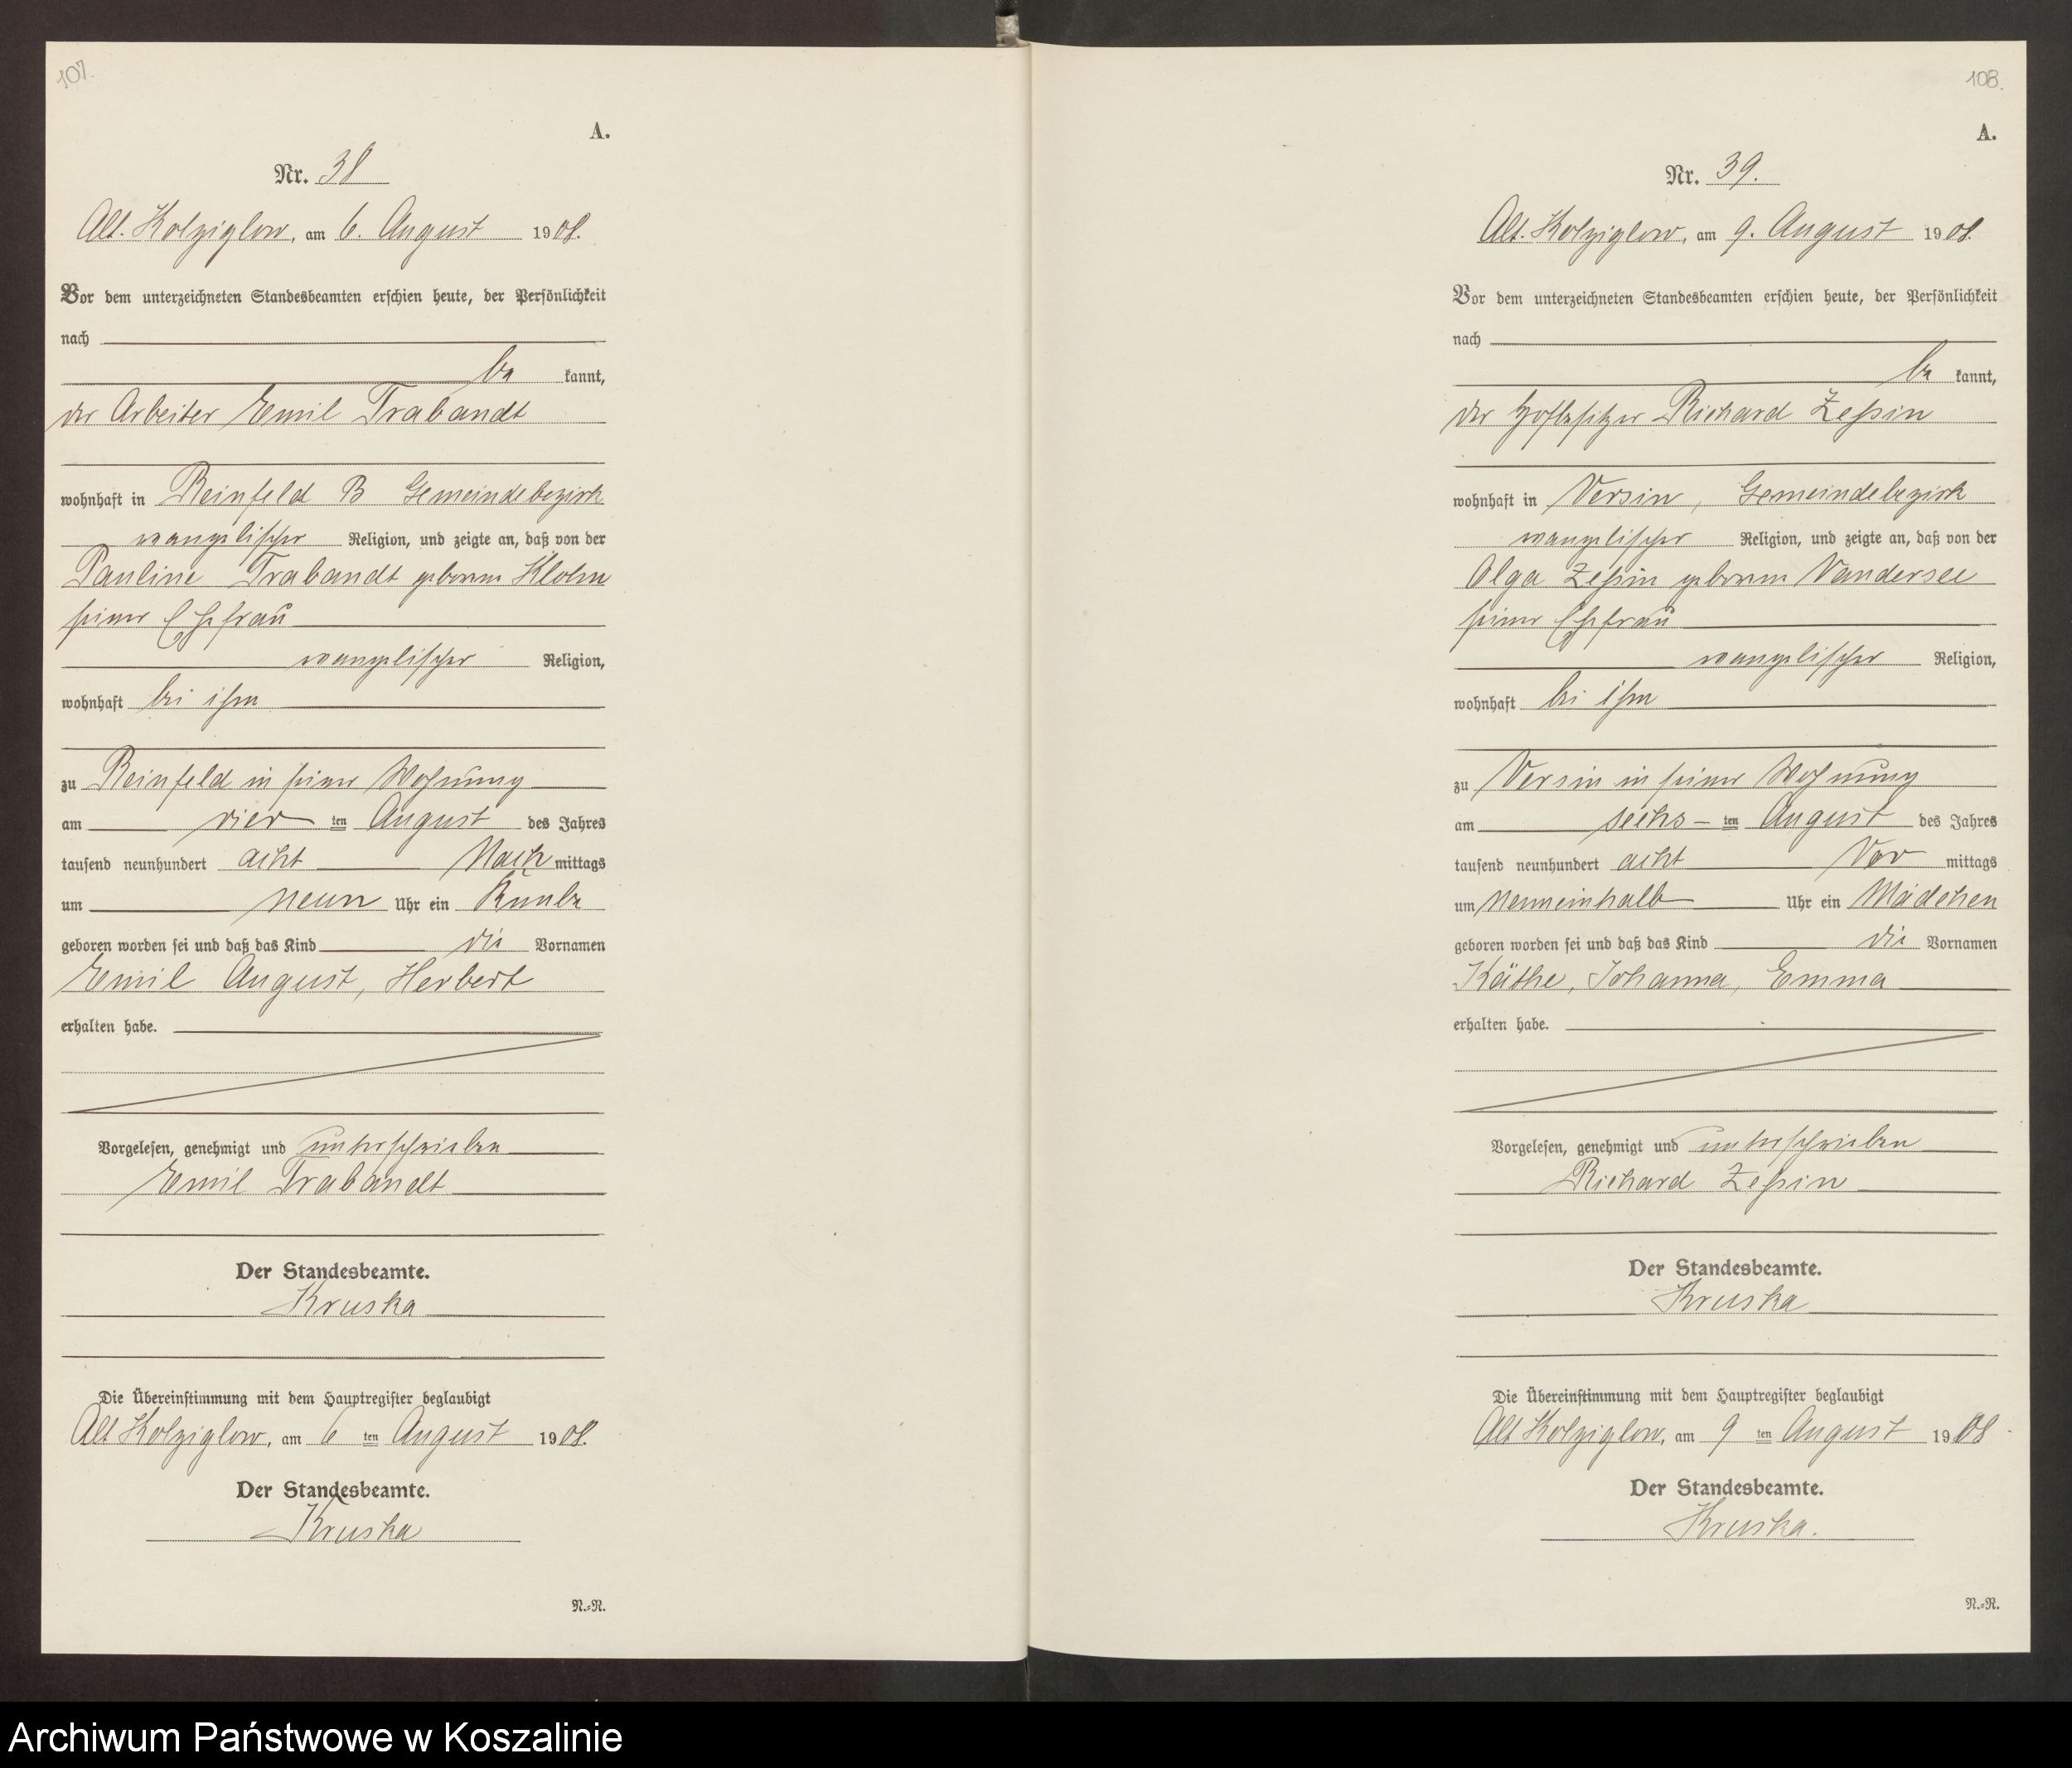 107.
A.
Nr. 38
Alt. Kolziglow, am 6. August 1908.
Vor dem unterzeichneten Standesbeamten erschien heute, der Persönlichkeit
nach
be kannt,
der Arbeiter Emil Trabandt
wohnhaft in Reinfeld B Gemeindebezirk
evangelischer Religion, und zeigte an, daß von der
Pauline Trabandt geborene Klohn
seiner Ehefrau
evangelischer Religion,
wohnhaft bei ihm
zu Reinfeld in seiner Wohnung
am vier ten August des Jahres
tausend neunhundert acht Nach mittags
um neun Uhr ein Knabe
geboren worden sei und daß das Kind die Vornamen
Emil August, Herbert
erhalten habe.
Vorgelesen, genehmigt und unterschrieben
Emil Trabandt
Der Standesbeamte.
Kruska
Die Übereinstimmung mit dem Hauptregister beglaubigt
Alt Kolziglow, am 6 ten August 1908.
Der Standesbeamte.
Kruska
N.=R.
108.
A.
Nr. 39.
Alt. Kolziglow, am 9. August 1908.
Vor dem unterzeichneten Standesbeamten erschien heute, der Persönlichkeit
nach
be kannt,
der Hofbesitzer Richard Zeßin
wohnhaft in Versin, Gemeindebezirk
evangelischer Religion, und zeigte an, daß von der
Olga Zeßin geborene Vandersee
seiner Ehefrau
evangelischer Religion,
wohnhaft bei ihm
zu Versin in seiner Wohnung
am sechs ten August des Jahres
tausend neunhundert acht Vor mittags
um neuneinhalb Uhr ein Mädchen
geboren worden sei und daß das Kind die Vornamen
Käthe, Johanna, Emma
erhalten habe.
Vorgelesen, genehmigt und unterschrieben
Richard Zeßin
Der Standesbeamte.
Kruska
Die Übereinstimmung mit dem Hauptregister beglaubigt
Alt Kolziglow, am 9 ten August 1908
Der Standesbeamte.
Kruska.
N.=R.
Archiwum Państwowe w Koszalinie